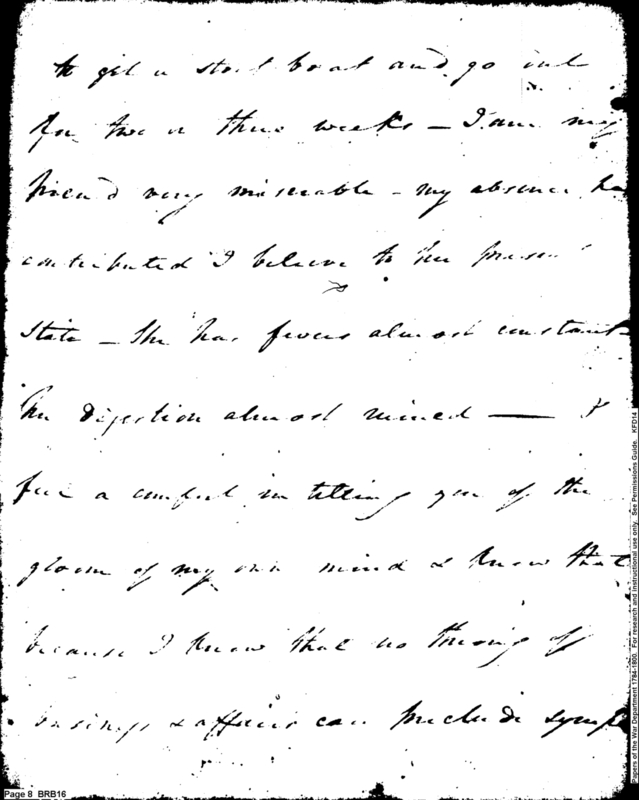 to get a stout boat and go out
for two or three weeks — I am my
friend very miserable – my absence has
contributed I believe to her present
State – She has fevers almost constant
her digestion almost ruined — I
feel a comfort in telling you of the
gloom of my own mind & know that
because I know that no throng of
business & affairs can preclude symp
Page 8 BRB16
Papers of the War Department 1784-1800. For research and instructional use only. See Permissions Guide. KFD14